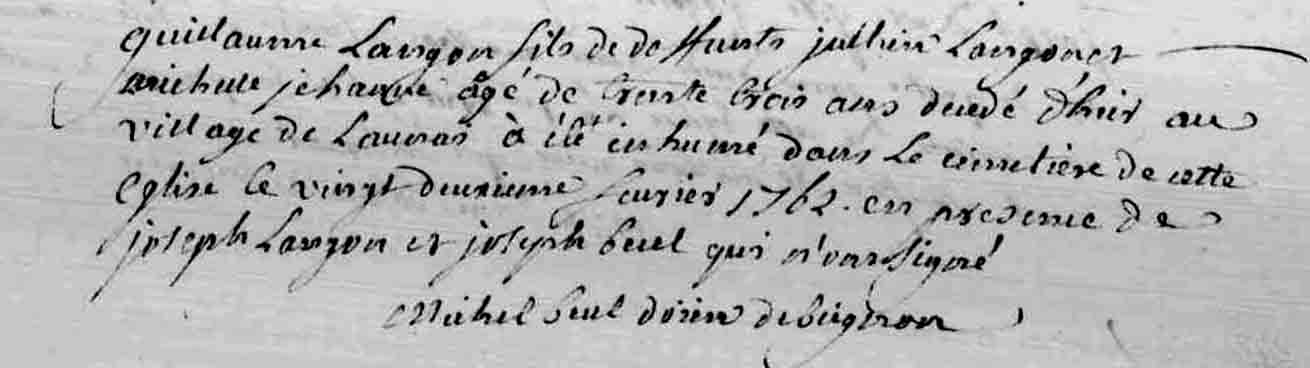 guillaume Langon fils de deffunts jullien Langon et
michelle jehanne âgé de trente trois ans decedé d'hier au
village de Launai à été inhumé dans le cimetière de cette
église le vingt deuxieme fevrier 1762. en presence de
joseph Langon et joseph beul qui n'ont signé
Michel beul doïen de bignon